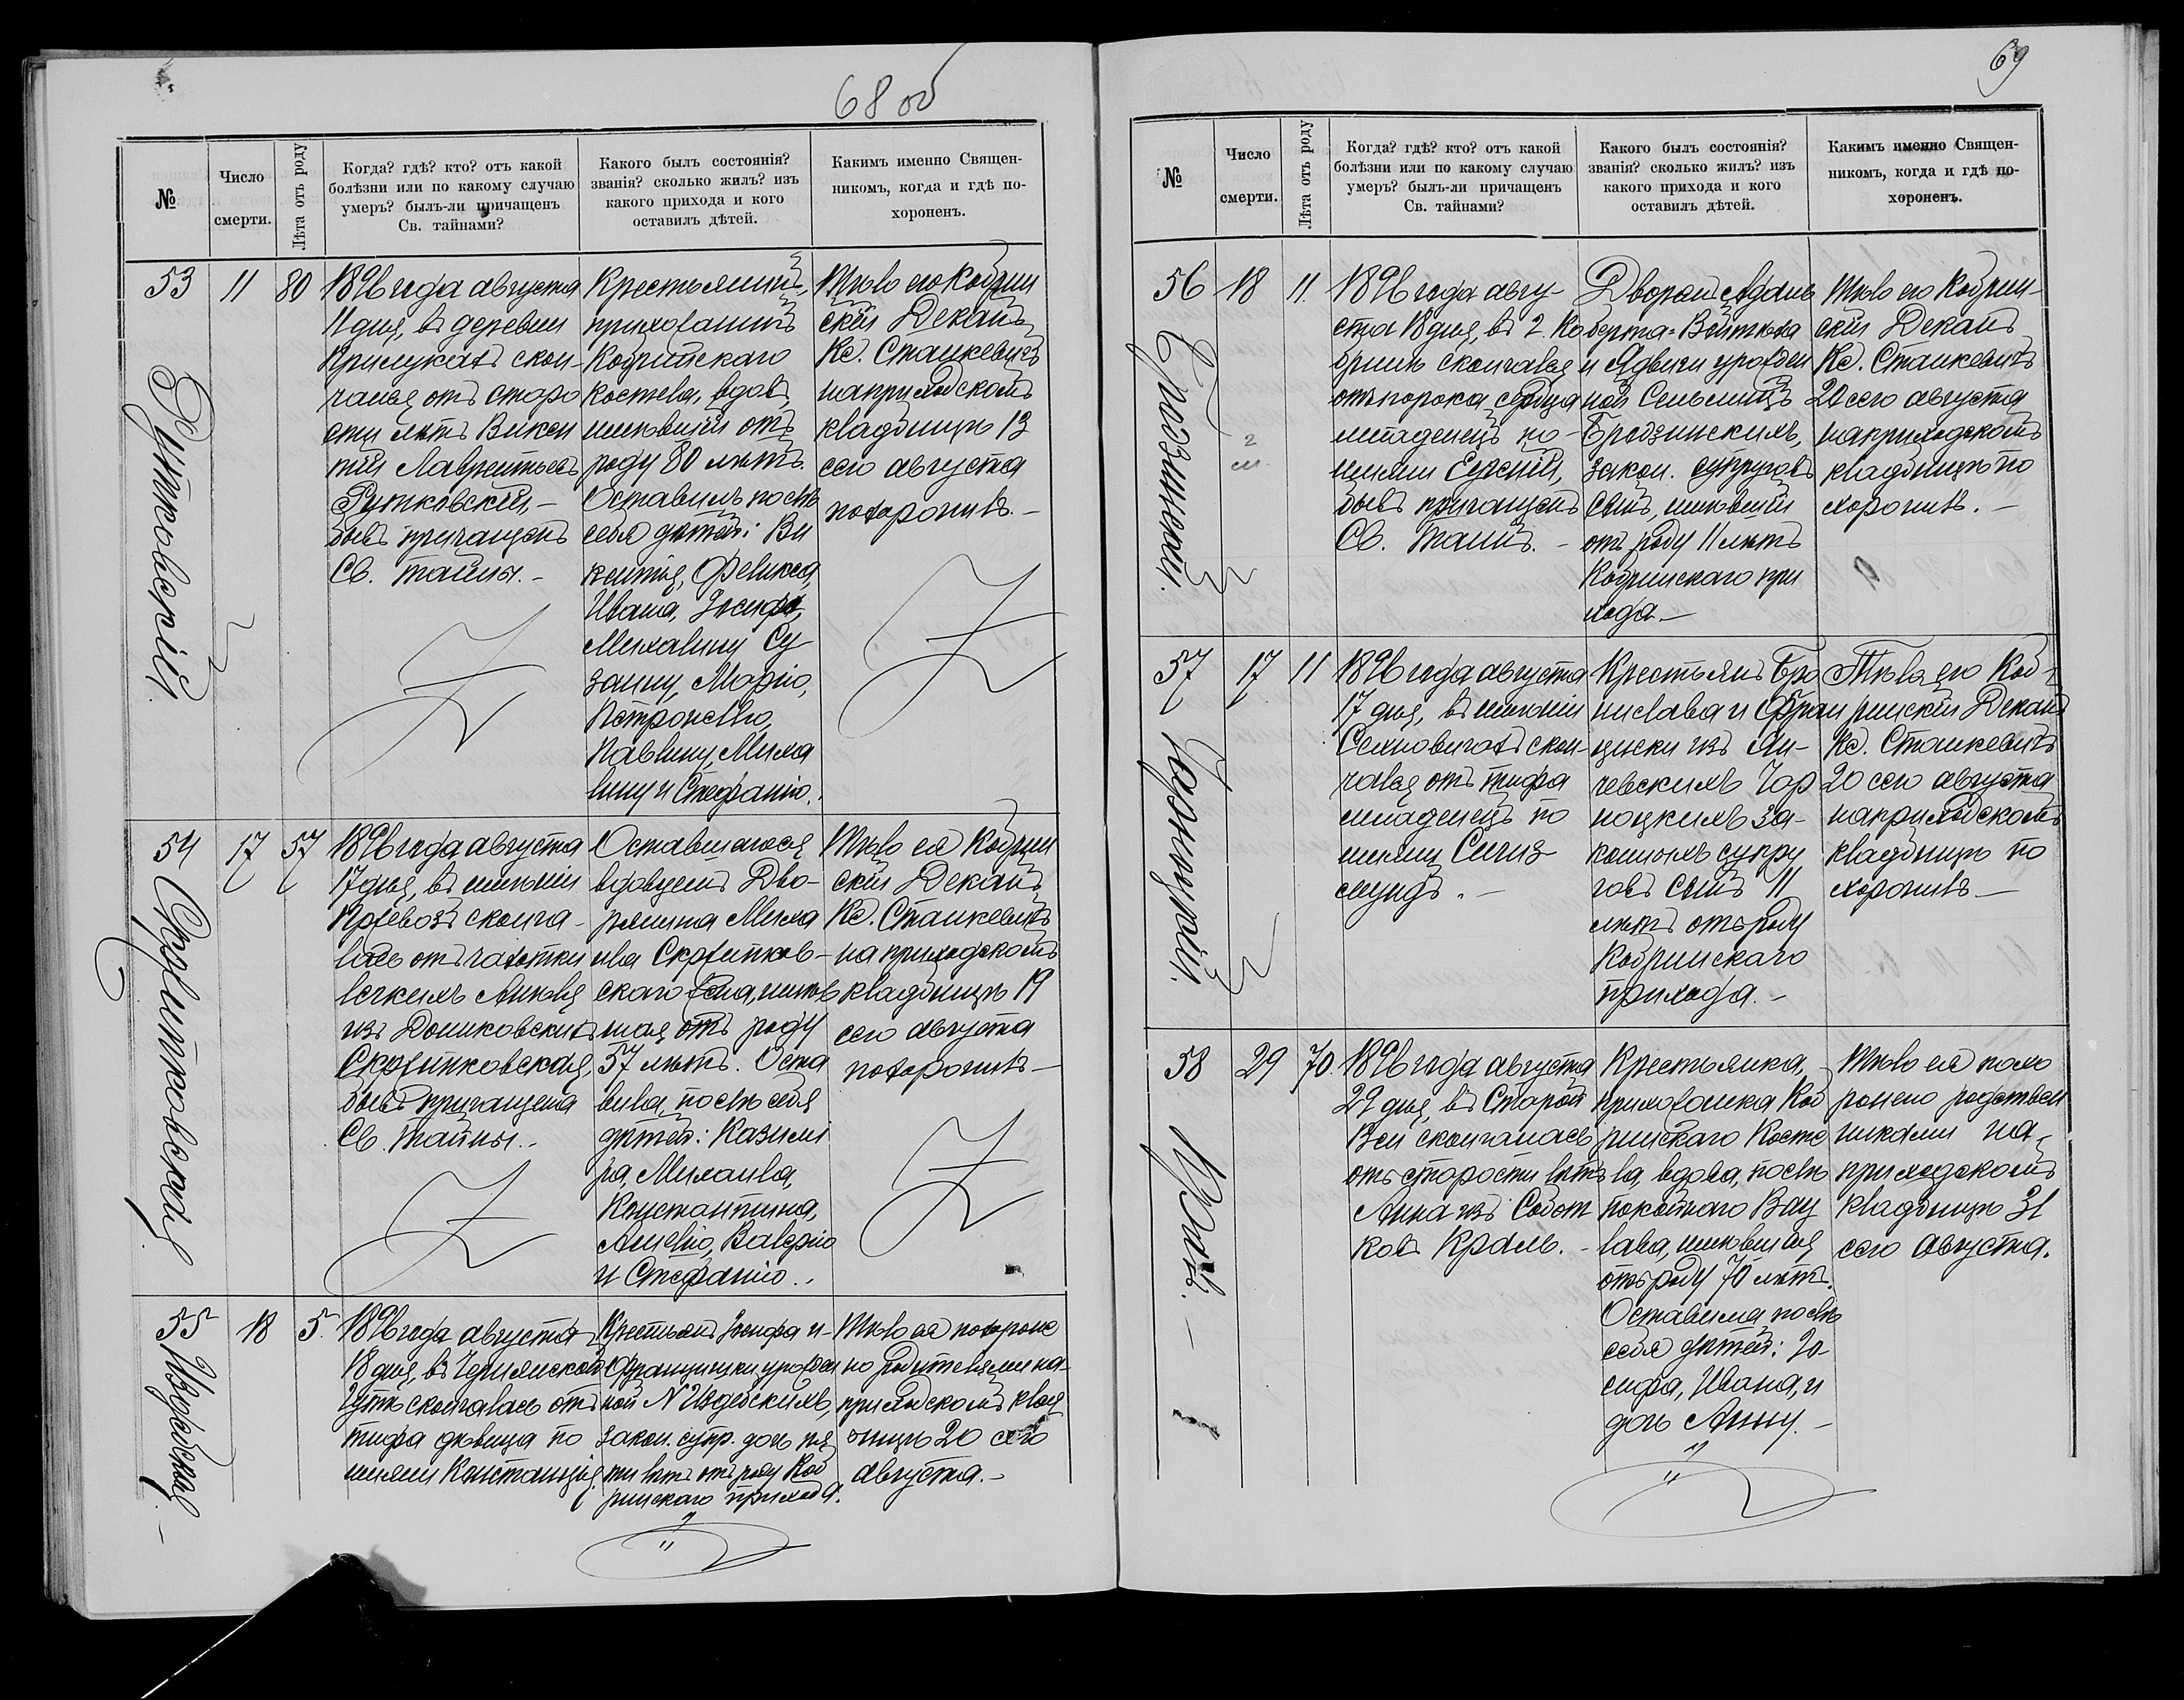 68 об
№
Число
смерти.
Лѣта отъ роду
Когда? гдѣ? кто? отъ какой
болѣзни или по какому случаю
умеръ? былъ-ли причащенъ
Св. тайнами?
Какого былъ состоянія?
званія? сколько жилъ? изъ
какого прихода и кого
оставилъ дѣтей.
Какимъ именно Священ-
никомъ, когда и гдѣ по-
хороненъ.
53
Рутковскій.
11
80
1896 года августа
11 дня, въ деревни
Прилукахъ скон-
чался отъ старо
сти лѣтъ Викен
тій Лаврентьевъ
Рутковскій, -
бывъ причащенъ
Св. тайны. -
Крестьянинъ,
прихожанинъ
Кобринскаго
костела, вдовъ,
имѣвшій отъ
роду 80 лѣтъ.
Оставилъ послѣ
себя дѣтей: Ви
кентія, Феликса,
Ивана, Іосифа,
Михалину Су
занну, Марію,
Петронелю,
Павлину, Миха
лину и Стефанію.
Тѣло его Кобрин
скій Деканъ
Кс. Станкевичъ
на приходскомъ
кладбищѣ 13
сего августа
похоронилъ. -
54
Скржитковская
17
57
1896 года августа
17 дня, въ имѣніи
сконча-
лась отъ чахотки
легкихъ Анѣля
изъ Домиковскихъ
Скржитковская,
бывъ причащена
Св. тайны. -
Оставшагося
вдовцемъ Дво-
рянина Миха
ила Скржитков-
скаго жена, имѣв
шая отъ роду
57 лѣтъ. Оста
вила послѣ себя
дѣтей: Казими
ра, Михаила,
Константина,
Амелію, Валерію
и Стефанію. -
Тѣло ея Кобрин
скій Деканъ
Кс. Станкевичъ
на приходскомъ
кладбищѣ 19
сего августа
похоронилъ -
55
18
5.
1896 года августа
18 дня, въ
скончалась отъ
тифа дѣвица по
имени Констанція.
Крестьянъ Іосифа и
Францишки урожден
ной N Издебскихъ,
закон. супр. дочь пя
ти лѣтъ отъ роду Коб
ринскаго прихода.
Тѣло ея похороне
но родителями на
приходскомъ клад
бищѣ 20 сего
августа. -
69
№
Число
смерти.
Лѣта отъ роду
Когда? гдѣ? кто? отъ какой
болѣзни или по какому случаю
умеръ? былъ-ли причащенъ
Св. тайнами?
Какого былъ состоянія?
званія? сколько жилъ? изъ
какого прихода и кого
оставилъ дѣтей.
Какимъ именно Священ-
никомъ, когда и гдѣ по-
хороненъ.
56
Бродзинскій.
18
11.
1896 года авгу-
ста 18 дня, въ г. Ко
бринѣ скончался
отъ порока сердца
младенецъ по
имени Евгеній,
бывъ причащенъ
Св. Таинъ. -
Дворянъ Адама
Роберта-Войтѣха
и Ядвиги урожден
ной
Бродзинскихъ,
закон. супруговъ
сынъ, имѣвшій
отъ роду 11 лѣтъ
Кобринскаго при
хода. -
Тѣло его Кобрин-
скій Деканъ
Кс. Станкевичъ
20 сего августа
на приходскомъ
кладбищѣ по
хоронилъ. -
57
Чарноцкій.
17
11
1896 года августа
17 дня, въ имѣніи
Сехновичахъ скон-
чался отъ тифа
младенецъ по
имени Сигиз
мундъ. -
Крестьянъ Бро
нислава и Фран
циски изъ Ян-
чевскихъ Чар
ноцкихъ за-
конныхъ супру
говъ сынъ 11
лѣтъ отъ роду
Кобринскаго
прихода. -
Тѣло его Коб-
ринскій Деканъ
Кс. Станкевичъ
20 сего августа
на приходскомъ
кладбищѣ по
хоронилъ -
58
Краль. -
29
70.
1896 года августа
29 дня, въ Старой
Вси скончалась
отъ старости лѣтъ
Анна изъ Собот
ковъ Краль. -
Крестьянка,
прихожанка Коб
ринскаго Косте
ла, вдова, послѣ
покойнаго Вац
лава, имѣвшая
отъ роду 70 лѣтъ.
Оставила послѣ
себя дѣтей: Іо
сифа, Ивана, и
дочь Анну. -
Тѣло ея похо
ронено родствен
никами на
приходскомъ
кладбищѣ 31
сего августа.